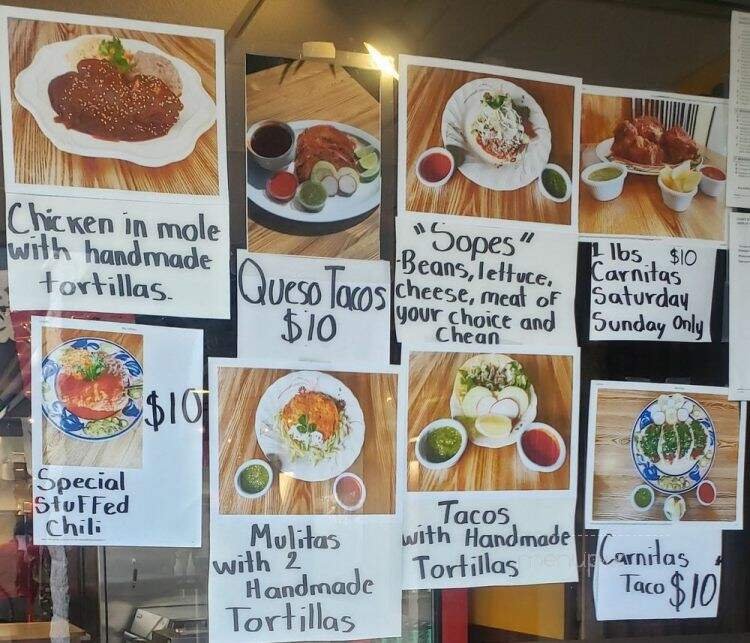 Chicken in mole
with handmade
tortillas.
Queso Tacos
$10
"Sopes"
Beans, lettuce,
cheese, meat of
your choice and
Chean
1 lbs $10
Carnitas
Saturday
Sunday Only
$10
Special
Stuffed
Chili
Mulitas
with 2
Handmade
Tortillas
Tacos
with Handmade
Tortillas
Carnitas
Taco $10